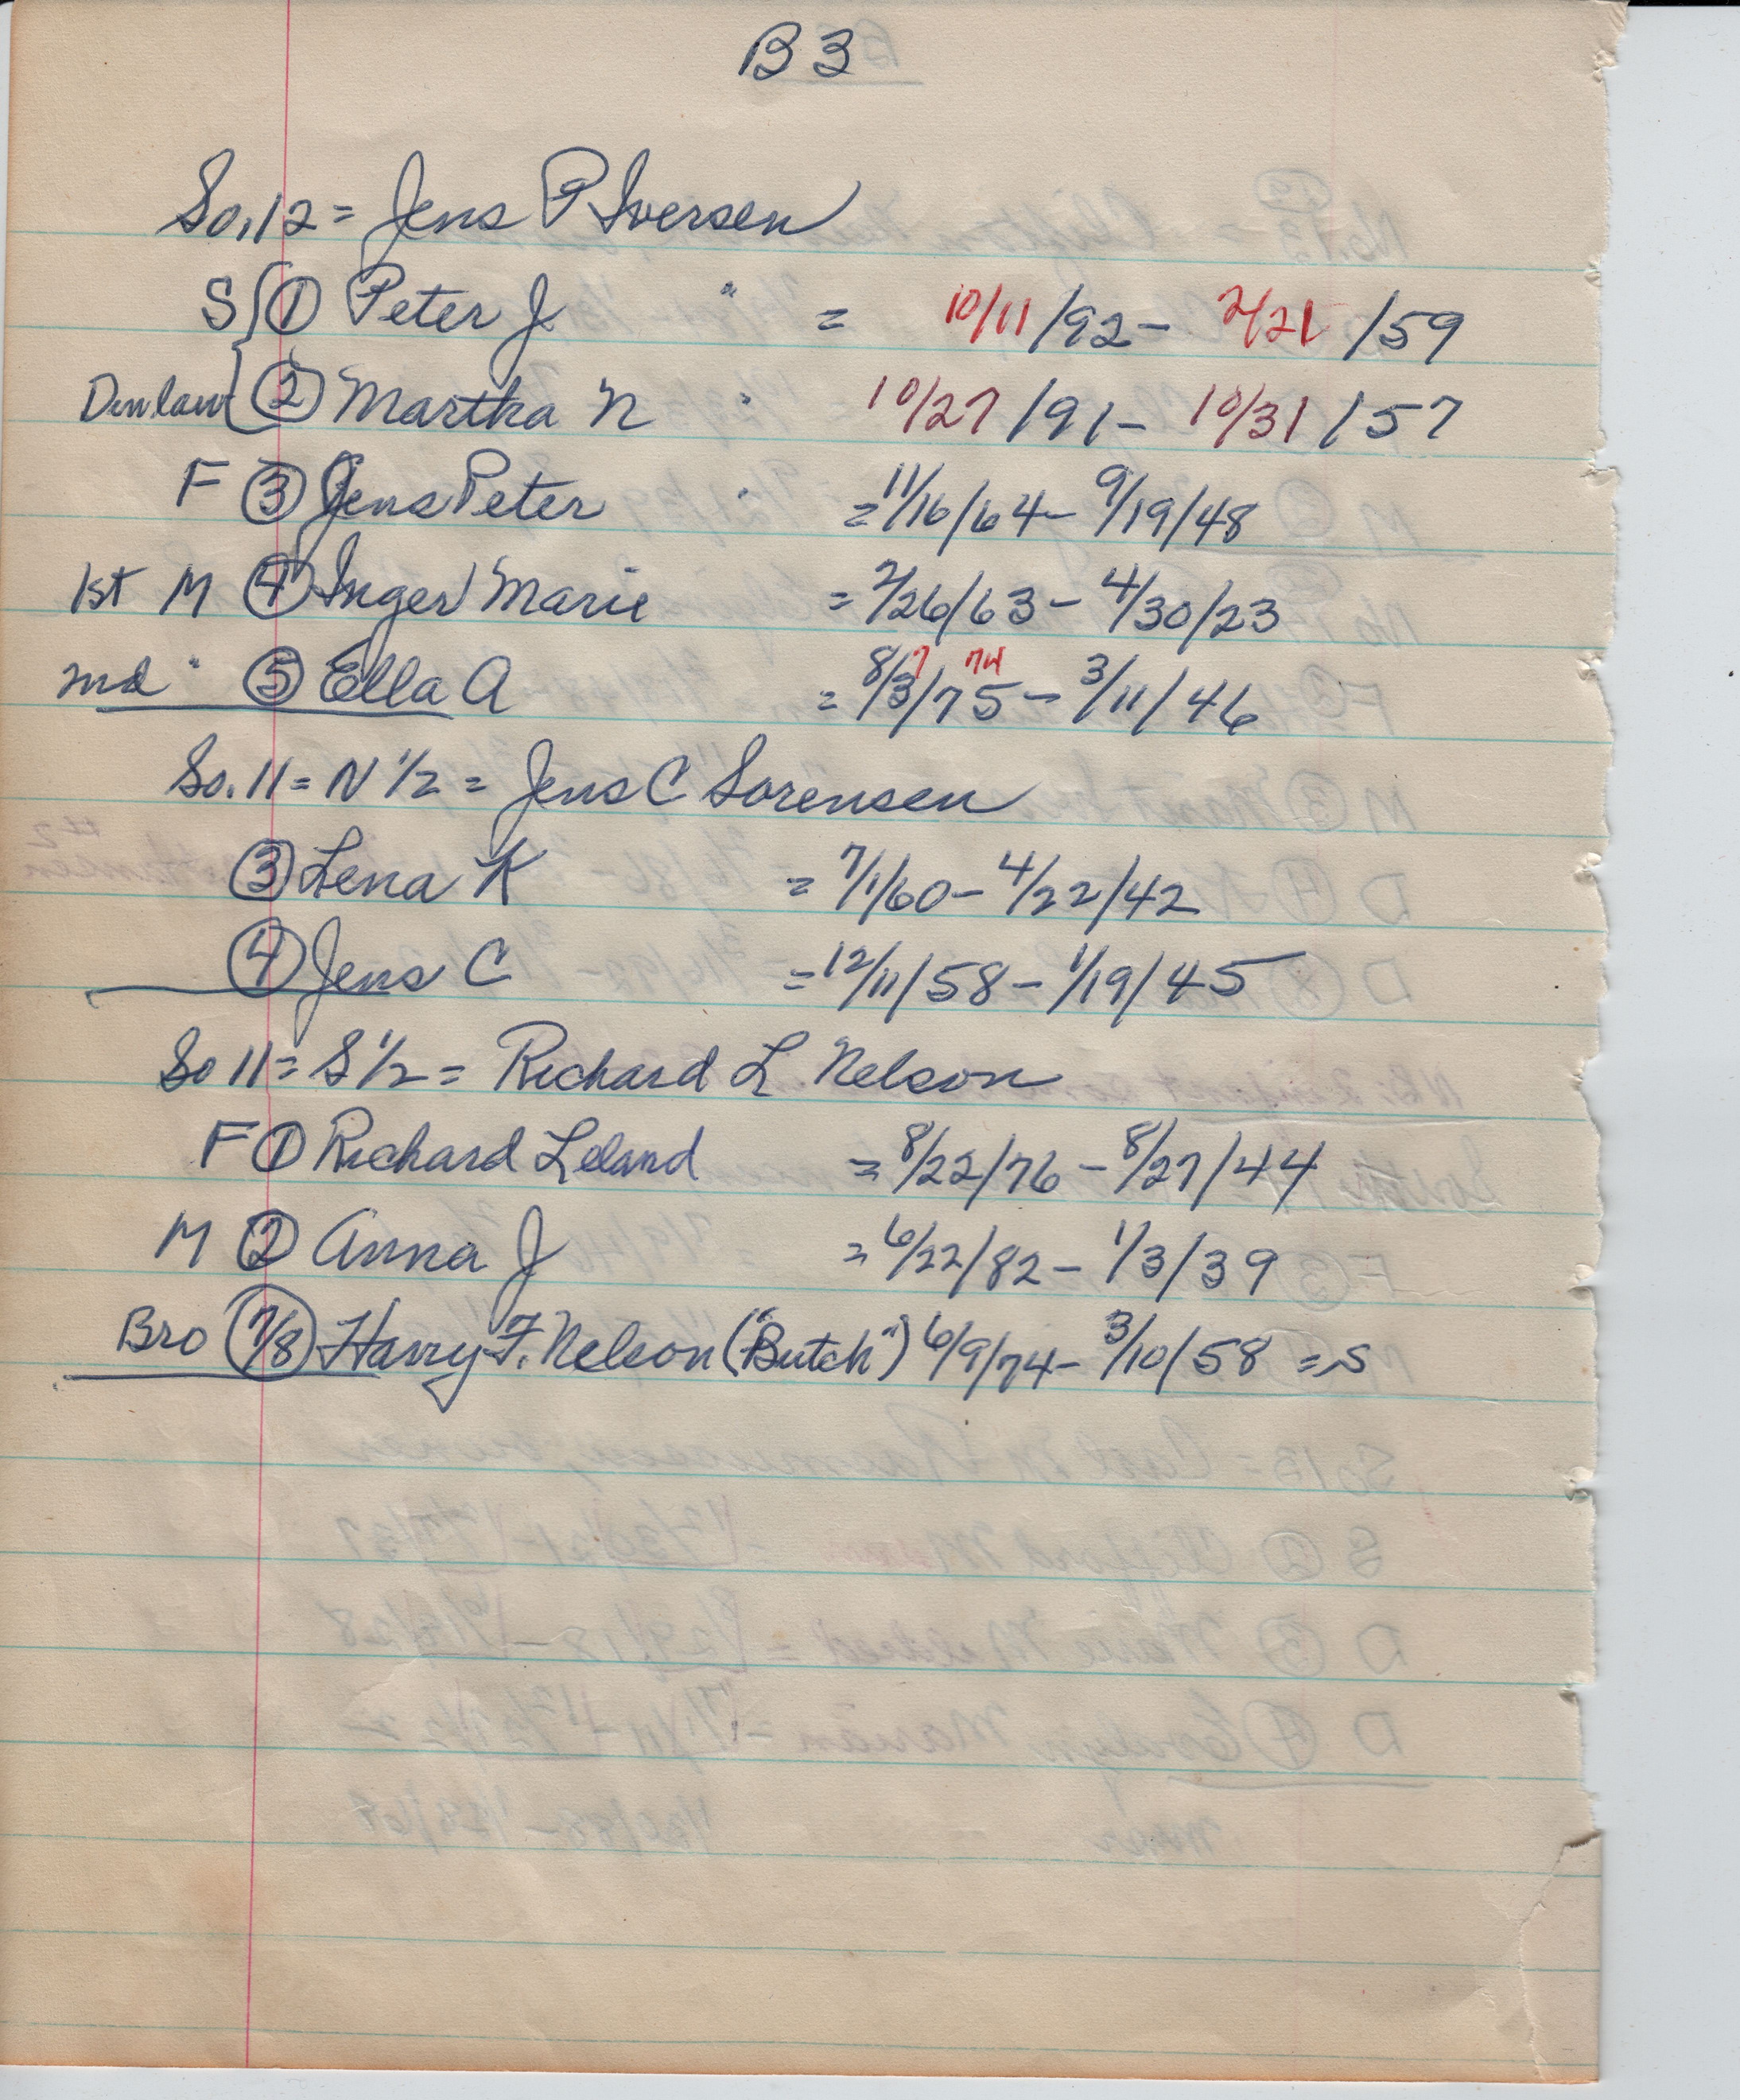 B3
So. 12 = Jens P Iversen
S { ① Peter J " = 10/11/92 - 2/21/59
D in law { ② Martha N " 10/27/91 - 10/31/57
F ③ Jens Peter " = 11/16/64 - 9/19/48
1st M ④ Inger Marie = 2/26/63 - 4/30/23
2nd " ⑤ Ella A = 8/3/75 - 3/11/46
7 74
So. 11 = N 1/2 = Jens C Sorensen
③ Lena K = 7/1/60 - 4/22/42
④ Jens C = 12/11/58 - 1/19/45
So 11 = S 1/2 = Richard L Nelson
F ① Richard Leland = 8/22/76 - 8/27/44
M ② Anna J = 6/22/82 - 1/3/39
Bro 7/8 Harry F. Nelson ("Butch") 6/9/74 - 3/10/58 = S